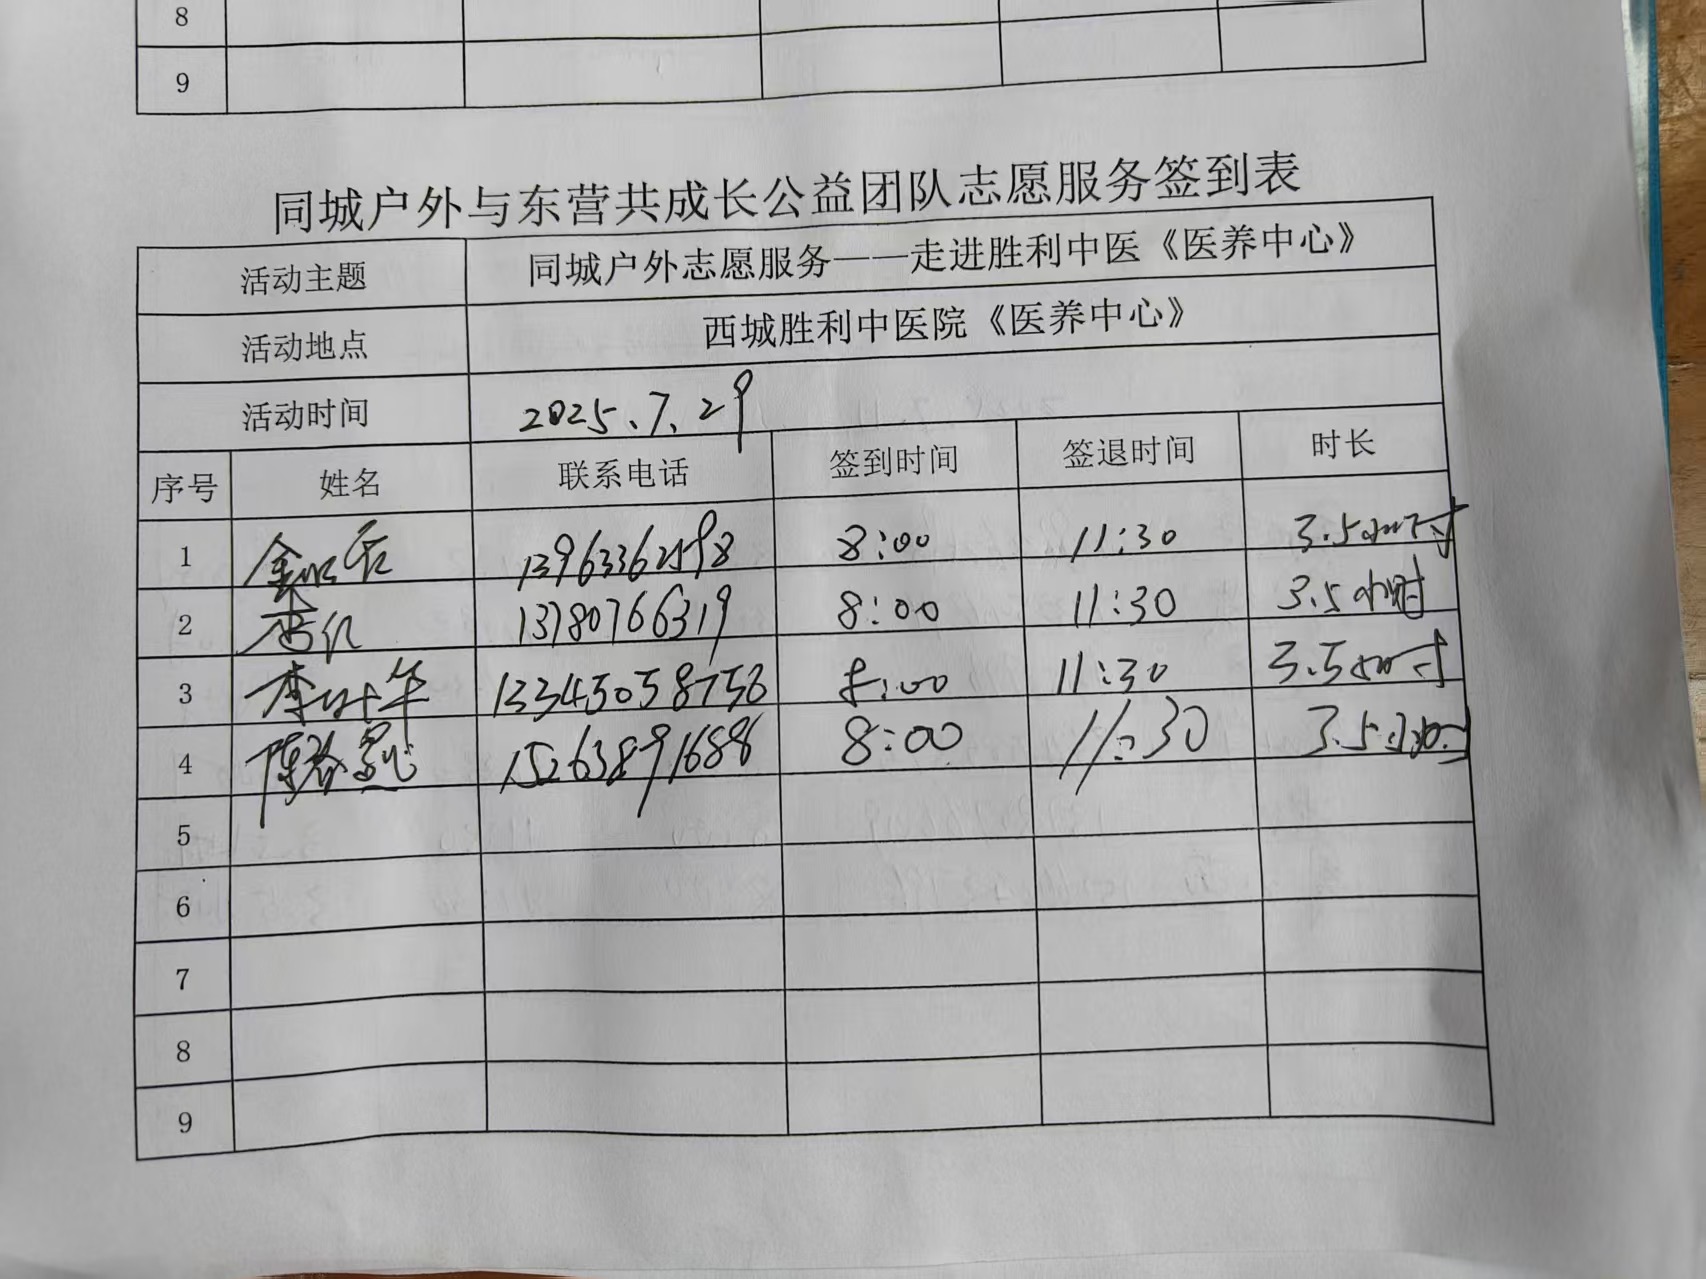 8
9
同城户外与东营共成长公益团队志愿服务签到表
活动主题 同城户外志愿服务——走进胜利中医《医养中心》
活动地点 西城胜利中医院《医养中心》
活动时间 2025.7.29
序号 姓名 联系电话 签到时间 签退时间 时长
1 13963362598 8:00 11:30 3.5小时
2 13780766319 8:00 11:30 3.5小时
3 李叶华 13345058758 8:00 11:30 3.5小时
4 15263891688 8:00 11:30 3.5小时
5
6
7
8
9